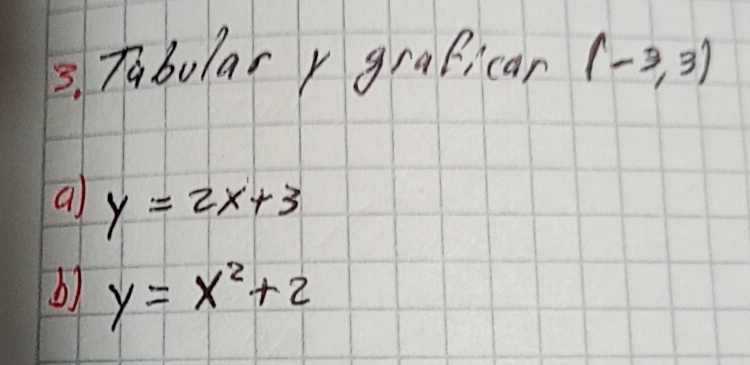 3. Tabular y graficar (-3, 3)
a) y = 2x+3
b) y = x²+2